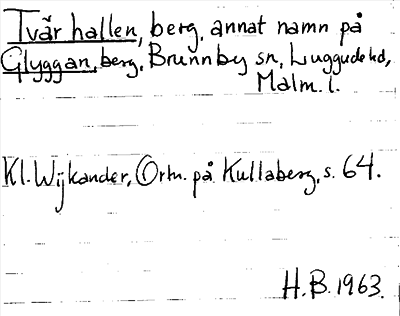 Tvär hallen, berg, annat namn på
Glyggan, berg, Brunnby sn, Luggude hd,
Malm. l.
Kl. Wijkander, Ortn. på Kullaberg, s. 64.
H.B. 1963.